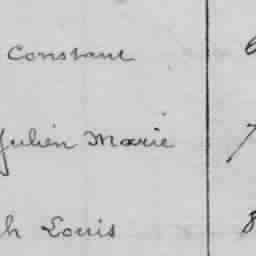 Constant 6
Julien Marie 7
h Louis 8